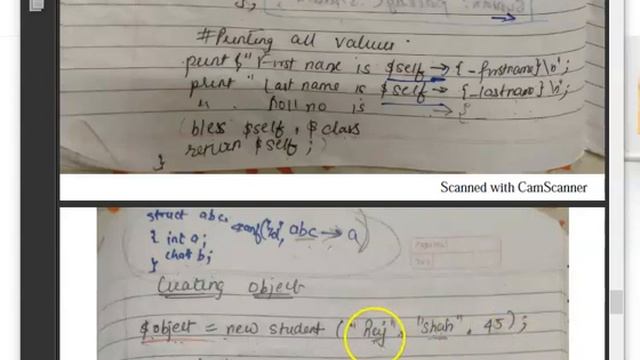 #Printing all values.
print "First name is $self → {_firstname}\n";
print "Last name is $self → {_lastname}\n";
" . Roll no is → {
bless $self, $class
return $self;
}
Scanned with CamScanner
struct abc
{ int a;
char b;
}
scanf("%d", abc → a)
Creating object
$object = new student ("Raj", "shah", 45);